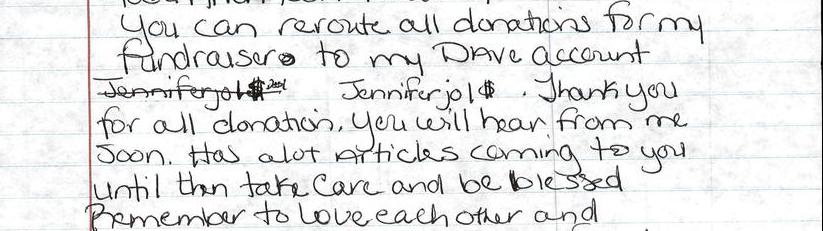 You can reroute all donations for my
fundraisers to my DAVE account
Jenniferjol$ Jenniferjol$. Thank you
for all donation, you will hear from me
soon. Has alot Articles coming to you
until then take Care and be blessed
Remember to Love each other and